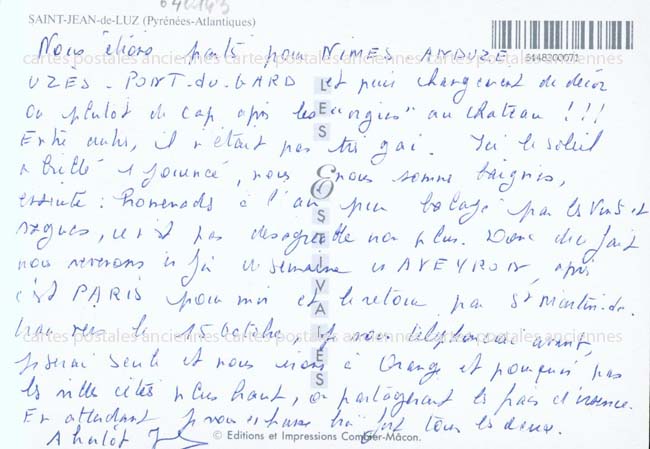 040143
SAINT-JEAN-de-LUZ (Pyrénées-Atlantiques)
6448200071
Nous étions partis pour NIMES - ANDUZE
UZES - PONT-du-GARD et puis changement de décor
ou plutôt de cap après les "orgies" au chateau !!!
Entre autres, il n'était pas très gai. Ici le soleil
a brillé 1 journée, nous nous sommes baignés,
ensuite : Promenade à l'air un peu balayé par les vents et
vagues, ce n'est pas désagréable non plus. Donc du fait
nous reverrons in fin de semaine en AVEYRON, après
c'est PARIS pour moi et le retour par St Martin-de-
vers le 15 octobre. je vous téléphonerai avant,
je serai seule et nous irons à Orange et pourquoi pas
les villes citées plus haut, on partagerait les frais d'essence.
En attendant je vous embrasse fort tous les deux.
A bientôt
LES ESTIVALES
cartes postales anciennes cartes postales anciennes cartes postales anciennes
cartes postales anciennes cartes postales anciennes cartes postales anciennes
© Editions et Impressions Combier-Mâcon.